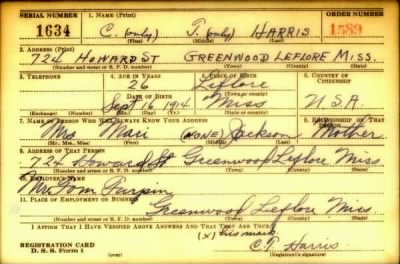 SERIAL NUMBER 1. NAME (Print) ORDER NUMBER
1634 C. (only) J. (only) HARRIS 1589
(First) (Middle) (Last)
2. ADDRESS (Print)
724 HOWARD ST GREENWOOD LEFLORE MISS.
(Number and street or R. F. D. number) (Town) (County) (State)
3. TELEPHONE 4. AGE IN YEARS 5. PLACE OF BIRTH 6. COUNTRY OF CITIZENSHIP
26 Leflore
DATE OF BIRTH (Town or county)
Sept 16 1914 Miss U.S.A.
(Exchange) (Number) (Mo.) (Day) (Yr.) (State or country)
7. NAME OF PERSON WHO WILL ALWAYS KNOW YOUR ADDRESS 8. RELATIONSHIP OF THAT PERSON
Mrs Mari (NONE) Jackson Mother
(Mr., Mrs., Miss) (First) (Middle) (Last)
9. ADDRESS OF THAT PERSON
724 Howard St Greenwood Leflore Miss
(Number and street or R. F. D. number) (Town) (County) (State)
10. EMPLOYER'S NAME
Mr Tom
11. PLACE OF EMPLOYMENT OR BUSINESS
Greenwood Leflore Miss
(Number and street or R. F. D. number) (Town) (County) (State)
I AFFIRM THAT I HAVE VERIFIED ABOVE ANSWERS AND THAT THEY ARE TRUE.
(X) his mark
REGISTRATION CARD C. J. Harris
D. S. S. Form 1 (Registrant's signature)